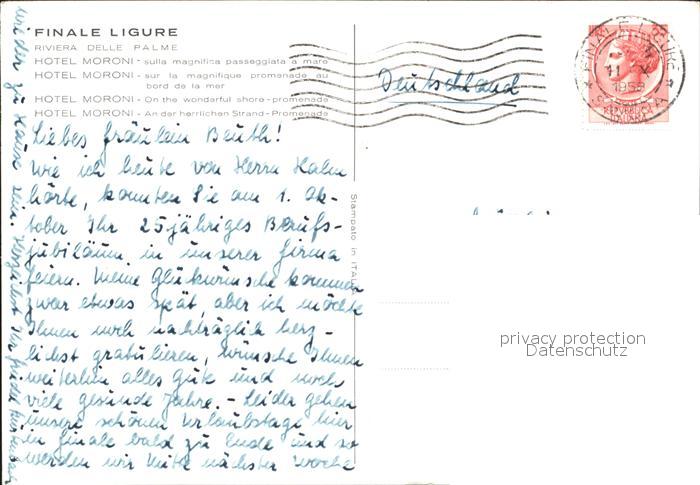 FINALE LIGURE
RIVIERA DELLE PALME
HOTEL MORONI - sulla magnifica passeggiata a mare
HOTEL MORONI - sur la magnifique promenade au
bord de la mer
HOTEL MORONI - On the wonderful shore-promenade
HOTEL MORONI - An der herrlichen Strand-Promenade
Deutschland
FINALE LIGURE
11 X
1958
Liebes Fräulein Beuth!
Wie ich heute von Herrn Hahn
hörte, konnten Sie am 1. Ok-
tober Ihr 25jähriges Berufs-
jubiläum in unserer Firma
feiern. Meine Glückwünsche kommen
zwar etwas spät, aber ich möchte
Ihnen noch nachträglich herz-
lichst gratulieren, wünsche Ihnen
weiterhin alles Gute und noch
viele gesunde Jahre. - Leider gehen
unsere schönen Urlaubstage hier
in Finale bald zu Ende und so
werden wir Mitte nächster Woche
wieder zu Hause sein. Herzlichst Ihr
Stampato in ITAL
privacy protection
Datenschutz